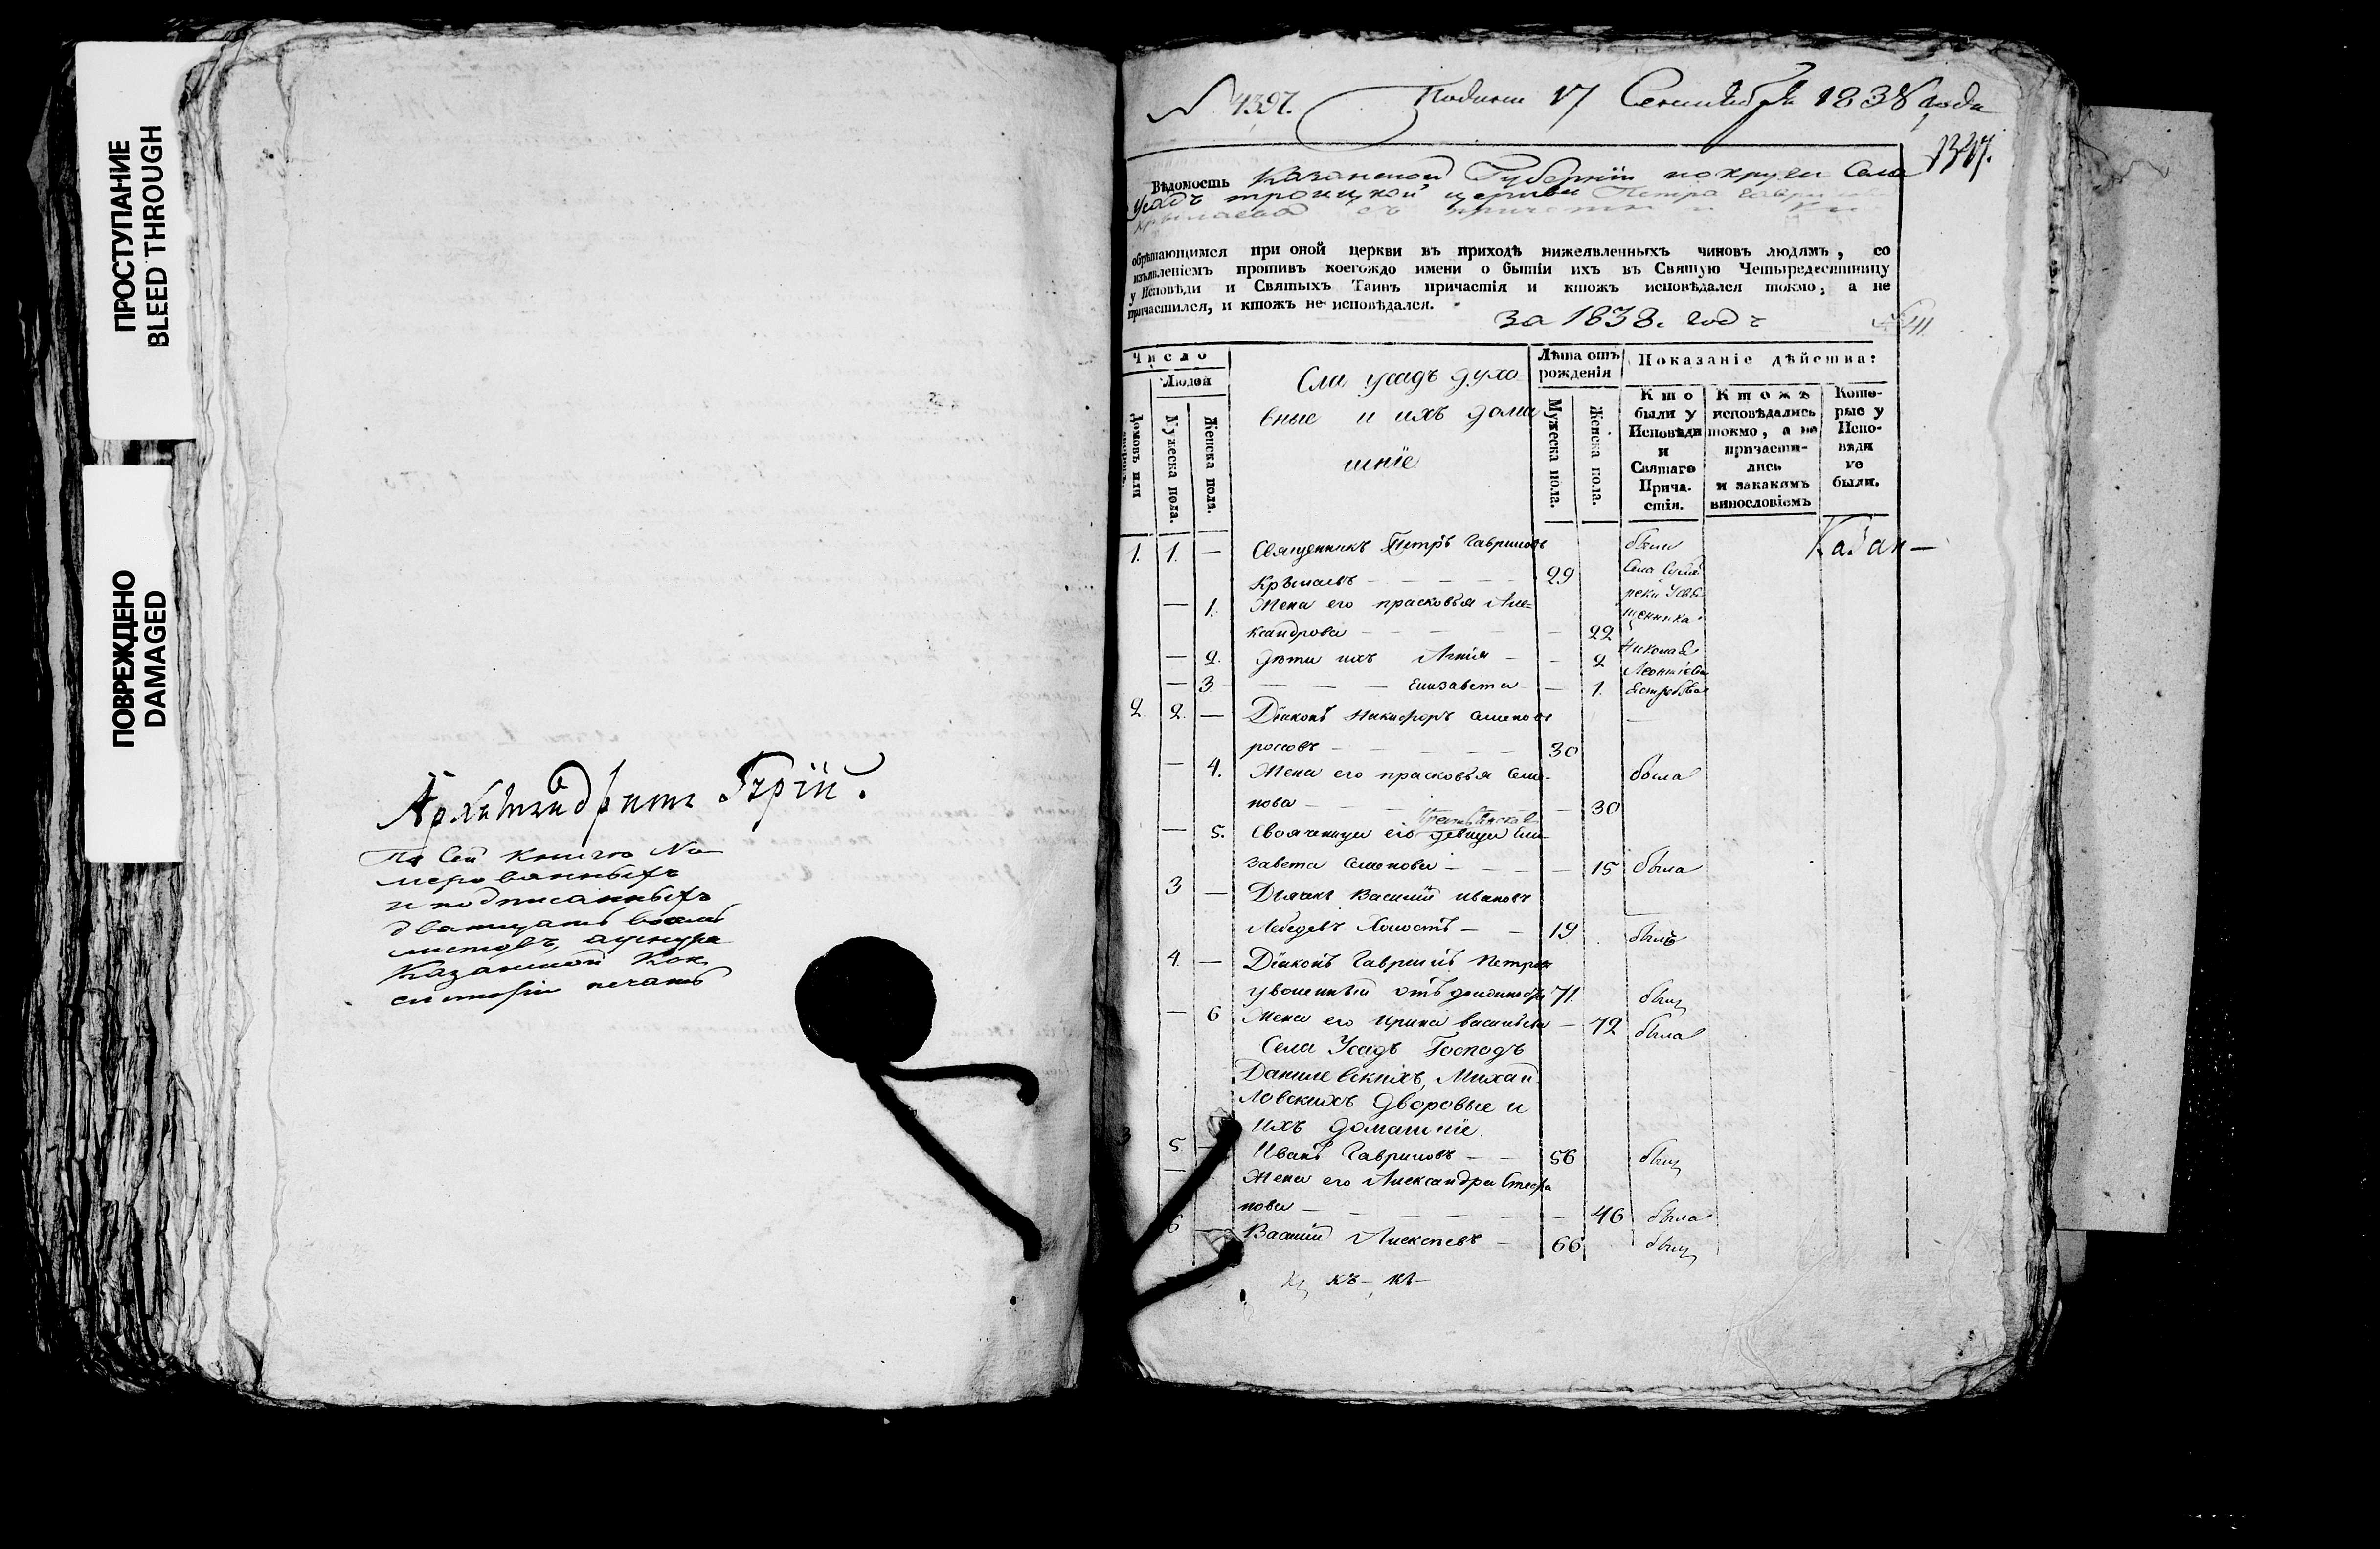 ПРОСТУПАНИЕ
BLEED THROUGH
ПОВРЕЖДЕНО
DAMAGED
Архимандритъ Гурій.
По сей книгѣ Но
мерованныхъ
и подписанныхъ
дватцать восемь
листовъ, а у снура
Казанской Кон
систоріи печать
N 4397.
Подана 17 Сентября 1838 года
1347.
Вѣдомость Казанской Губерніи округи Села
Усадъ троицкой церкви Петра Гаврилова
съ
обрѣтающимся при оной церкви въ приходѣ нижеявленныхъ чиновъ людямъ, со
изъявленіемъ противъ коегождо имени о бытіи ихъ въ Святую Четыредесятницу
у Исповѣди и Святыхъ Таинъ причастія и ктожъ исповѣдался токмо, а не
причастился, и ктожъ не исповѣдался.
за 1838. годъ
Число
Людей
Домовъ или
Мужеска пола.
Женска пола.
Села усадъ духо
вные и ихъ дома
шніе
Лѣта отъ рожденія
Мужеска пола.
Женска пола.
Показаніе дѣйства:
Кто были у Исповѣди и Святаго Причастія.
Ктожъ исповѣдались токмо, а не причастились и закакимъ винословіемъ
Которые у Исповѣди не были.
1. 1. — Священникъ Петръ Гавриловъ были Казан—
29
— 1. Жена его прасковья Але-
ксандрова — 22
— 2. Дѣти ихъ Агнія — 2
— 3 — Елизавета — 1.
2. 2. — Діаконъ Никифоръ Семеновъ —
россовъ — 30
— 4. Жена его прасковья Семе- была
нова — 30
— 5. Свояченица его девица Ели-
завета Семенова — 15 была
3 — Дьячекъ Василій Ивановъ
Лебедевъ Холостъ — 19 былъ
4. — Діаконъ Гавріилъ Петровъ
уволенный отъ должности 71. былъ
— 6 Жена его Ирина васильева — 72 была
Села Усадъ Господъ
Данилевскихъ, Михай
ловскихъ дворовые и
ихъ домашніе.
5. — Иванъ Гавриловъ — 56 былъ
— Жена его Александра Стефа
нова — 46 была
6 — Василій Алексѣевъ — 66 былъ